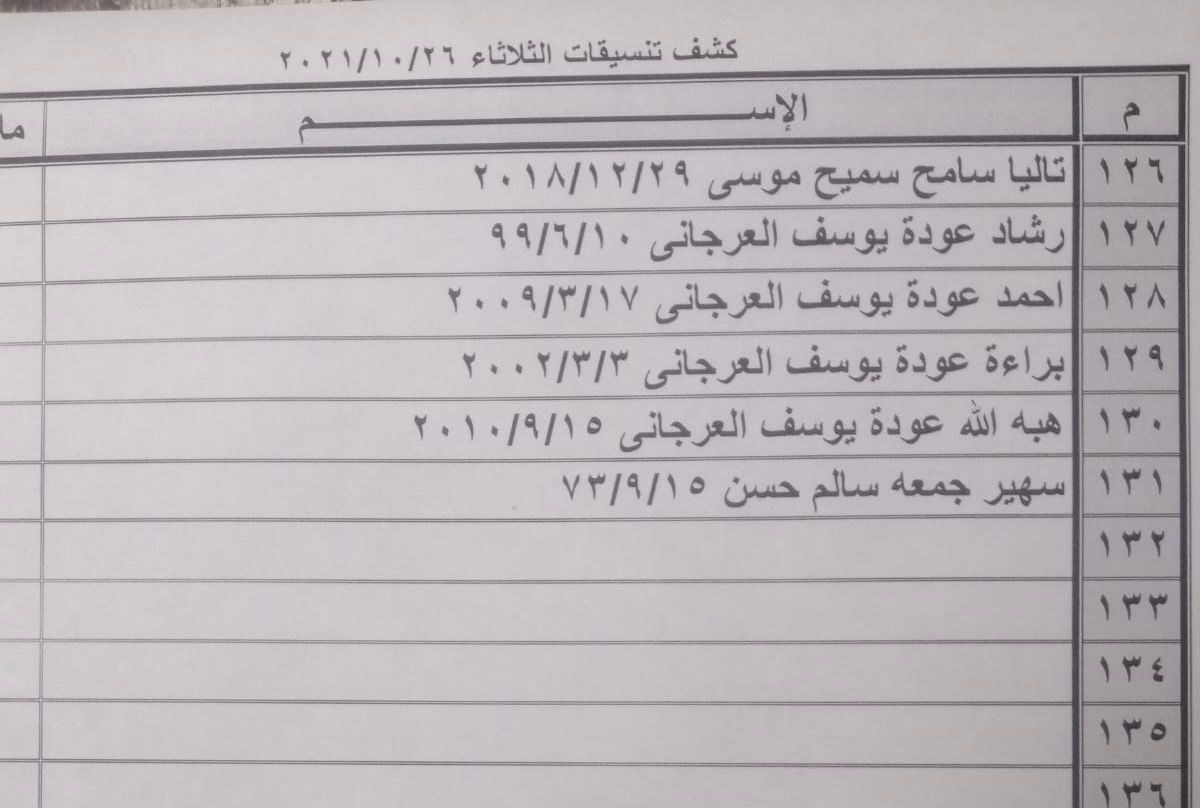 كشف تنسيقات الثلاثاء ٢٠٢١/١٠/٢٦
م الإســـــــــــــــــــم
١٢٦ تاليا سامح سميح موسى ٢٠١٨/١٢/٢٩
١٢٧ رشاد عودة يوسف العرجانى ٩٩/٦/١٠
١٢٨ احمد عودة يوسف العرجانى ٢٠٠٩/٣/١٧
١٢٩ براءة عودة يوسف العرجانى ٢٠٠٢/٣/٣
١٣٠ هبه الله عودة يوسف العرجانى ٢٠١٠/٩/١٥
١٣١ سهير جمعه سالم حسن ٧٣/٩/١٥
١٣٢
١٣٣
١٣٤
١٣٥
١٣٦